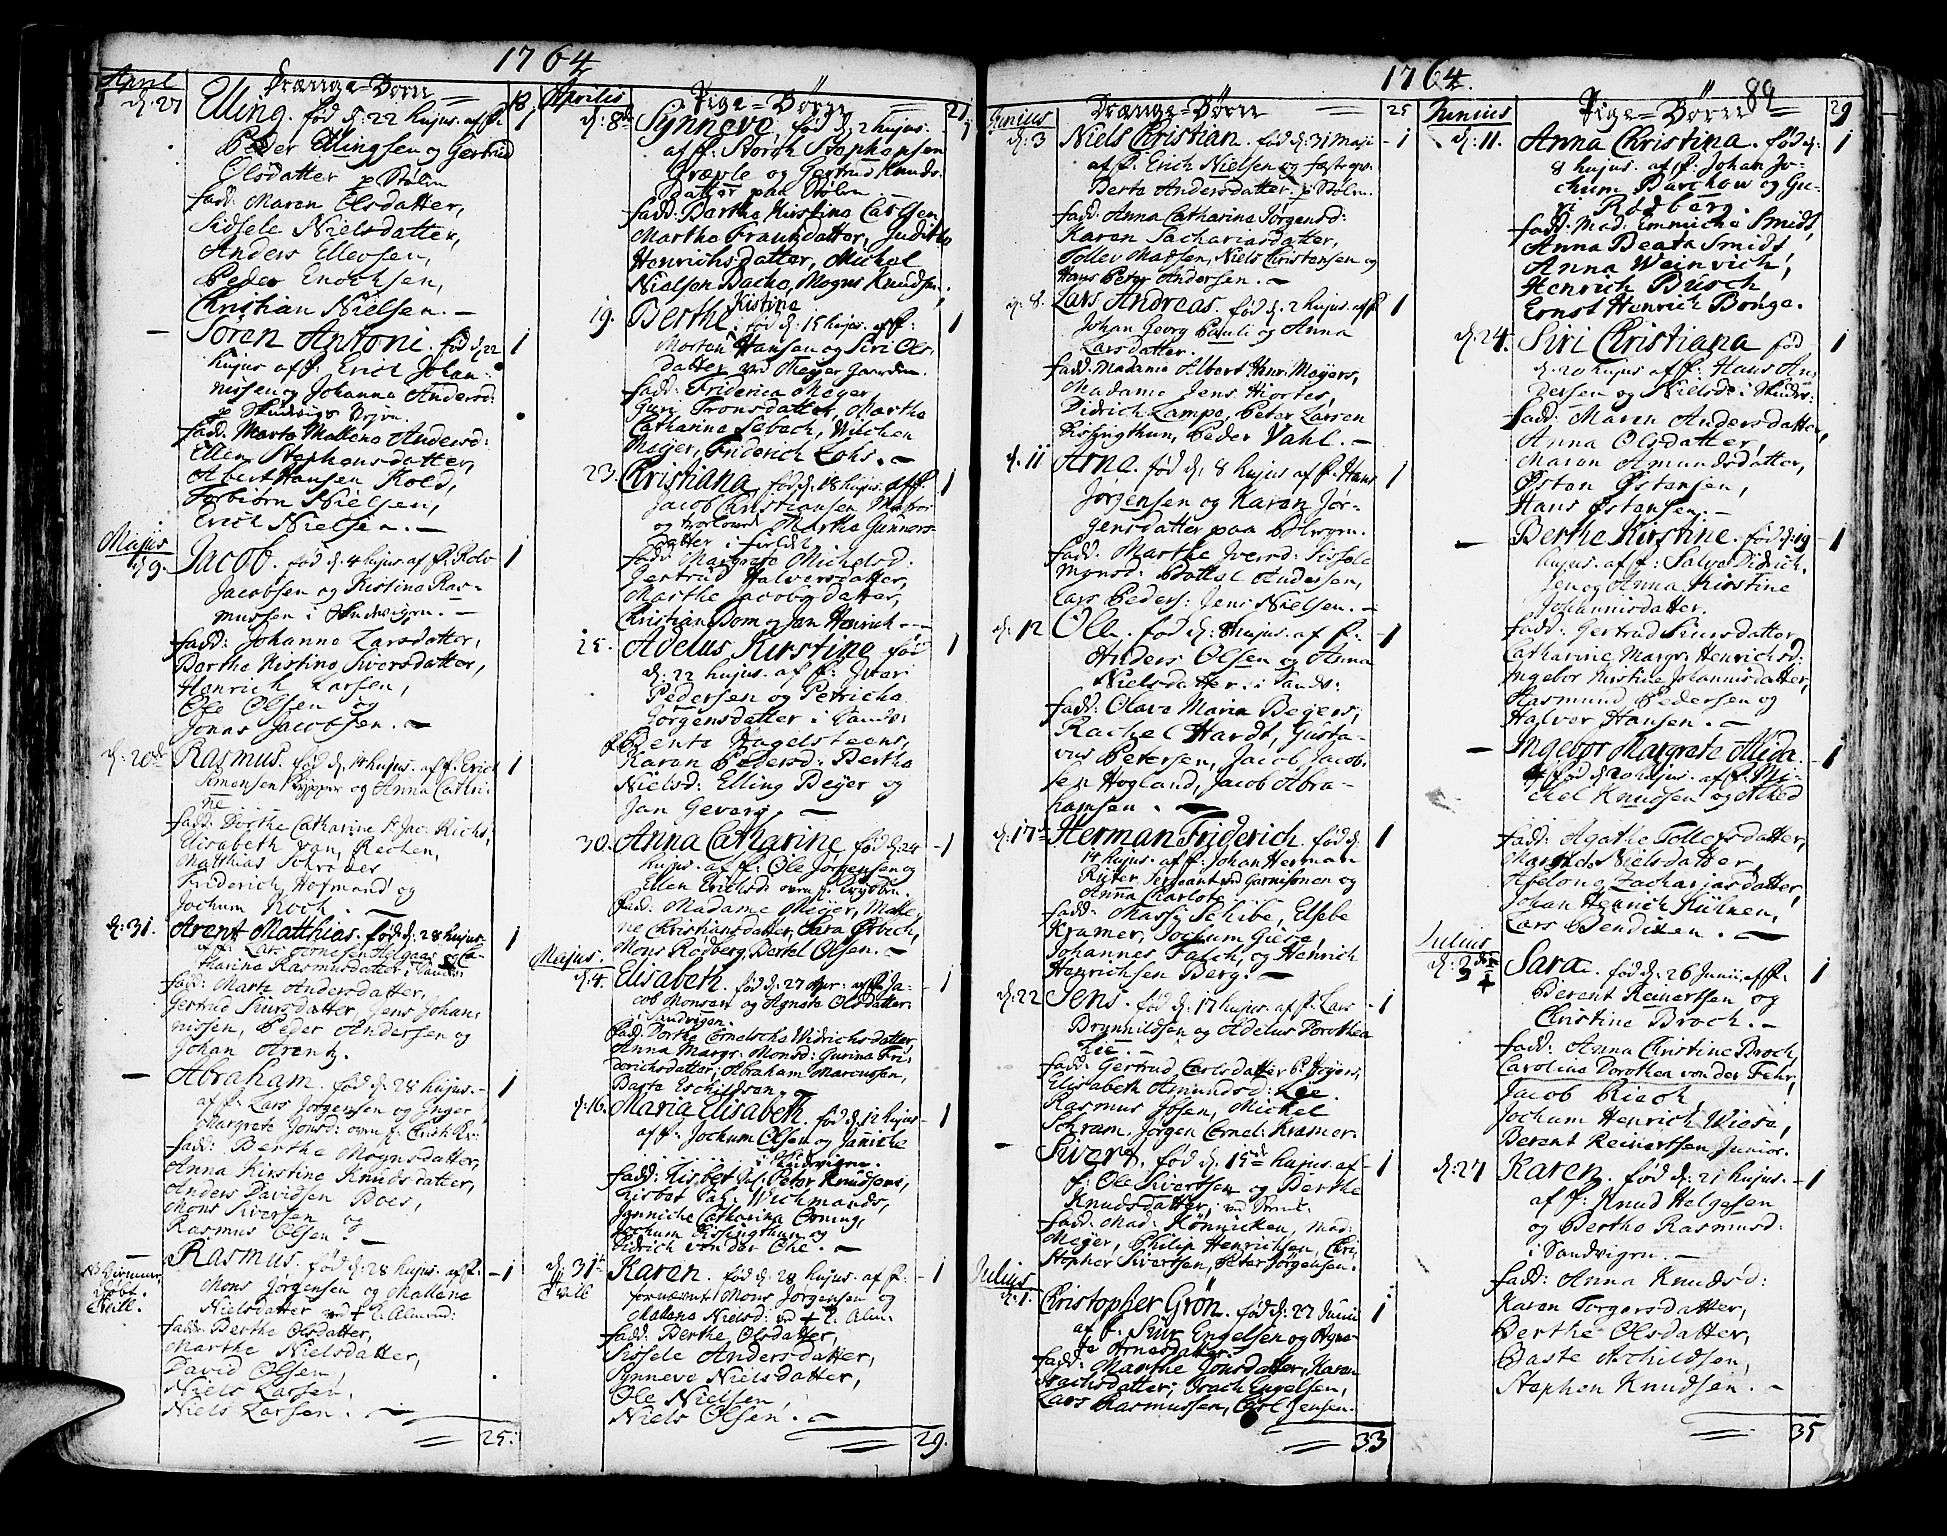 1764
April
Drænge-Børn
18
d: 27
Elling. fød d: 22 hujus. af F:
Peder Ellingsen og Gertrud
Olsdatter p Stølen
fadd: Maren Olsdatter,
Sidsele Nielsdatter,
Anders Ellevsen,
Peder Enochsen,
Christian Nielsen. —
— Soren Antoni. fød d: 22 1
hujus af F: Erich Johan-
nissen og Johanna Andersd:
fadd: Marta Mallena Andersd:
Ellen Stephensdatter,
Albert Hansen Kold,
Torbiørn Nielsen,
Erich Nielsen. —
Majus
d: 9. Jacob. fød d: 4 hujus. af F: Rolv 1
Jacobsen og Kistina Ras-
mussen i Sandvigen. —
fadd: Johanna Larsdatter,
Berthe Kistina Siversdatter,
Henrich Larsen,
Ole Olsen og
Jonas Jacobsen. —
d: 20de Rasmus. fød d: 14 hujus. af F: Erich 1
Simensen og Anna Cathri-
ne
fadd: Dorthe Catharine Sl Jac: Richs,
Elisabeth van Rechen,
Matthias Schrøder
Friderich Hofmand og
Jochum Koch. —
d: 31. Arent Matthias. fød d: 28 hujus. 1
af F: Lars Tønesen Helgaas og Ca-
tharina Rasmusdatter i Sandv:
fadd: Marte Andersdatter,
Gertrud Siursdatter, Jens Johan-
nissen, Peder Andersen og
Johan Arentz.
— Abraham. fød d: 28 hujus. 1
af F: Lars Jørgensen og Inger
Margrete Jonsd:
fadd: Berthe Mognsdatter,
Anna Kirstine Knudsdatter,
Anders Davidsen Boes,
Mons Sversen og
Rasmus Olsen. —
— Rasmus. fød d: 28 hujus. af F: 1
Mons Jørgensen og Mallena
Nielsdatter
Tvill.
fadd: Berthe Olsdatter,
Marthe Nielsdatter,
David Olsen,
Niels Larsen,
Niels Larsen. —
25.
Aprilis
Pige-Børn
21
d: 8de Synneve. fød d: 2 hujus. 1
af F: Storch Stephensen
og Gertrud Knuds-
datter paa Stølen. —
fadd: Barthe Kirstina Carlsen,
Martha Frantzdatter, Judithe
Henrichsdatter, Michel
Nielsen Bache, Mogns Knudsen.
19. Berthe Kistine. fød d: 15 hujus. af F: 1
Morten Hansen og Siri Ols-
datter ved Meyer Gaarden.
fadd: Friderica Meyer
Guri Tronsdatter, Martha
Catharina Sebach, Wilchen
Meyer, Friderich Lohs. —
23. Christiana. fød d: 18 hujus. af F: 1
Jacob Christiansen
og Martha Gunners-
datter
fadd: Margrete Michelsd:
Gertrud Halversdatter,
Marthe Jacobsdatter,
Christian Bom og Jan Henrich —
25. Adelus Kirstina fød 1
d: 22 hujus. af F: Iver
Pedersen og Petricha
Jørgensdatter i Sandv:
Bente Hagelsteens,
Karen Pedersd: Bertha
Nielsd: Elling Beyer og
Jan Geverg. —
30. Anna Catharine fød d: 24 1
hujus. af F: Ole Jørgensen og
Ellen Erichsd:
fadd: Madame Meyer, Malle-
ne Christiansdatter, Sara Grbech,
Mons Rodberg, Bertel Olsen. —
Majus.
d: 4. Elisabeth. fød d: 27 Apr. af F: Ja- 1
cob Monsen og Agnete Olsdatter
i Sandvigen.
fadd: Dorthe Cornelscha Didrichsdatter,
Anna Margr: Monsd: Gurina Fri-
derichsdatter, Abraham Marcussen,
Baste Eschildsen. —
d: 16. Maria Elisabeth. fød d: 12 hujus 1
af F: Jochum Olsen og Janicke
i Sandvigen.
fadd: Lisbet Sl: Peter Knudsens,
Lisbet Sal: Wichmands,
Synniche Catharina Orning,
Jochum Fissingthun og
Didrich von der Ohe. —
d: 31te Karen. fød d: 28 hujus. af F: 1
Tvill
fornævnt Mons Jørgensen og
Mallena Nielsd:
fadd: Berthe Olsdatter,
Sissele Andersdatter,
Synneve Nielsdatter,
Ole Nielsen,
Niels Olsen. —
29.
1764.
89
Junius
Drænge-Børn
25
d: 3 Niels Christian. fød d: 31 Maji 1
af F: Erich Nielsen og
Berta Andersdatter. p Stølen.
fadd: Anna Catharina Jørgensd:
Karen Sachariasdatter,
Tollev Madsen, Niels Christensen og
Hans Peter Andersen. —
d: 8. Lars Andreas. fød d: 2 hujus. af F: 1
Johan Georg Pauli og Anna
Larsdatter.
fadd: Madame Albert Henr: Meyers,
Madame Jens Hiortes,
Didrich Lampe, Peter Larsen
Fissingthun, Peder Vahl. —
d: 11 Arna. fød d: 8 hujus af F: Hans 1
Jørgensen og Karen Jør-
gensdatter paa
fadd: Marthe Iversd: Sissele
Monsd: Battel Andersen,
Lars Peders: Jens Nielsen. —
d: 12 Ole. fød d: 8 hujus. af F: 1
Anders Olsen og Anna
Nielsdatter. i Sandv:
fadd: Olave Maria Beyers,
Rachel Hardt, Gusta-
vus Petersen, Jacob Jacob-
sen Hogland, Jacob Abra-
hamsen. —
d: 17de Herman Friderich. fød d: 1
14 hujus. af F: Johan Herman
Ruter Sergeant ved Garnisonen og
Anna Charlote.
fadd: Massi Schibe, Elsebe
Kramer, Jochum Giese,
Johannes Falch, og Henrich
Henrichsen Berg. —
d: 22 Jens. fød d: 17 hujus. af F: Lars 1
Brynnildsen og Adelus Dorothea
Lie. —
fadd: Gertrud Carlsdatter
Elisabeth Amundsd: Lie.
Rasmus Ibsen, Michel
Schram, Jørgen Cornel: Kramer.
— Sivert. fød d. 15de hujus. af 1
F: Ole Sivertsen og Berthe
Knudsdatter,
fadd: Mad: Könnicken, Mad:
Meyer, Philip Henrichsen, Chri-
stopher Sivertsen, Peter Jørgensen.
Julius
d: 1. Christopher Grøn. fød d: 27 Junii 1
af F: Siur Engelsen og Agna-
ta Arnesdatter.
fadd: Marthe Jonsdatter, Karen
Isachsdatter, Isach Engelsen,
Lars Rasmussen, Carl Jensen.
33
Junius
Pige-Børn
29
d: 11. Anna Christina. fød d: 1
8 hujus. af F: Johan Jo-
chum Barchow og Gu-
ri Rodberg.
fadd: Mad: Emmiche Smidt,
Anna Beata Smidt
Anna Weinrich,
Henrich Busch
Ernst Henrich Bonge.
d: 24. Siri Christiana fød 1
d. 20 hujus af F: Hans An-
dersen og Nielsd: i Sandv:
fadd: Maren Andersdatter,
Anna Olsdatter,
Maren Amundsdatter,
Østen Østensen,
Hans Østensen. —
— Berthe Kirstine. fød d: 19 1
hujus. af F: Salve Didrich-
sen og Anna Kirstine
Johannisdatter.
fadd: Gertrud Siursdatter
Catharine Margr: Henrichsd:
Ingebor Kirstine Johannisdatter,
Rasmund Pedersen og
Halver Hansen. —
— Ingebor Margrete Alida. 1
fød d: 20 hujus. af F: Mi-
chel Knudsen og Alhed
fadd: Agathe Tollefsdatter,
Nielsdatter,
Apelone Zachariasdatter,
Johan Henrich Kühnen,
Lars Bendixen. —
Julius
d: 3 Sara. fød d: 26 Junii. af F: 1
Berent Reinertsen og
Christine Broch. —
fadd: Anna Christine Broch,
Carolina Dorothea von der Fehr,
Jacob Risch,
Jochum Henrich Wiese,
Berent Reinertsen Junior.
d: 27 Karen. fød d: 21 hujus. 1
af F: Knud Helgesen
og Bertha Rasmusd:
i Sandvigen. —
fadd: Anna Knudsd:
Karen Torgersdatter,
Berthe Olsdatter,
Baste Achildsen,
Stephen Knudsen. —
35